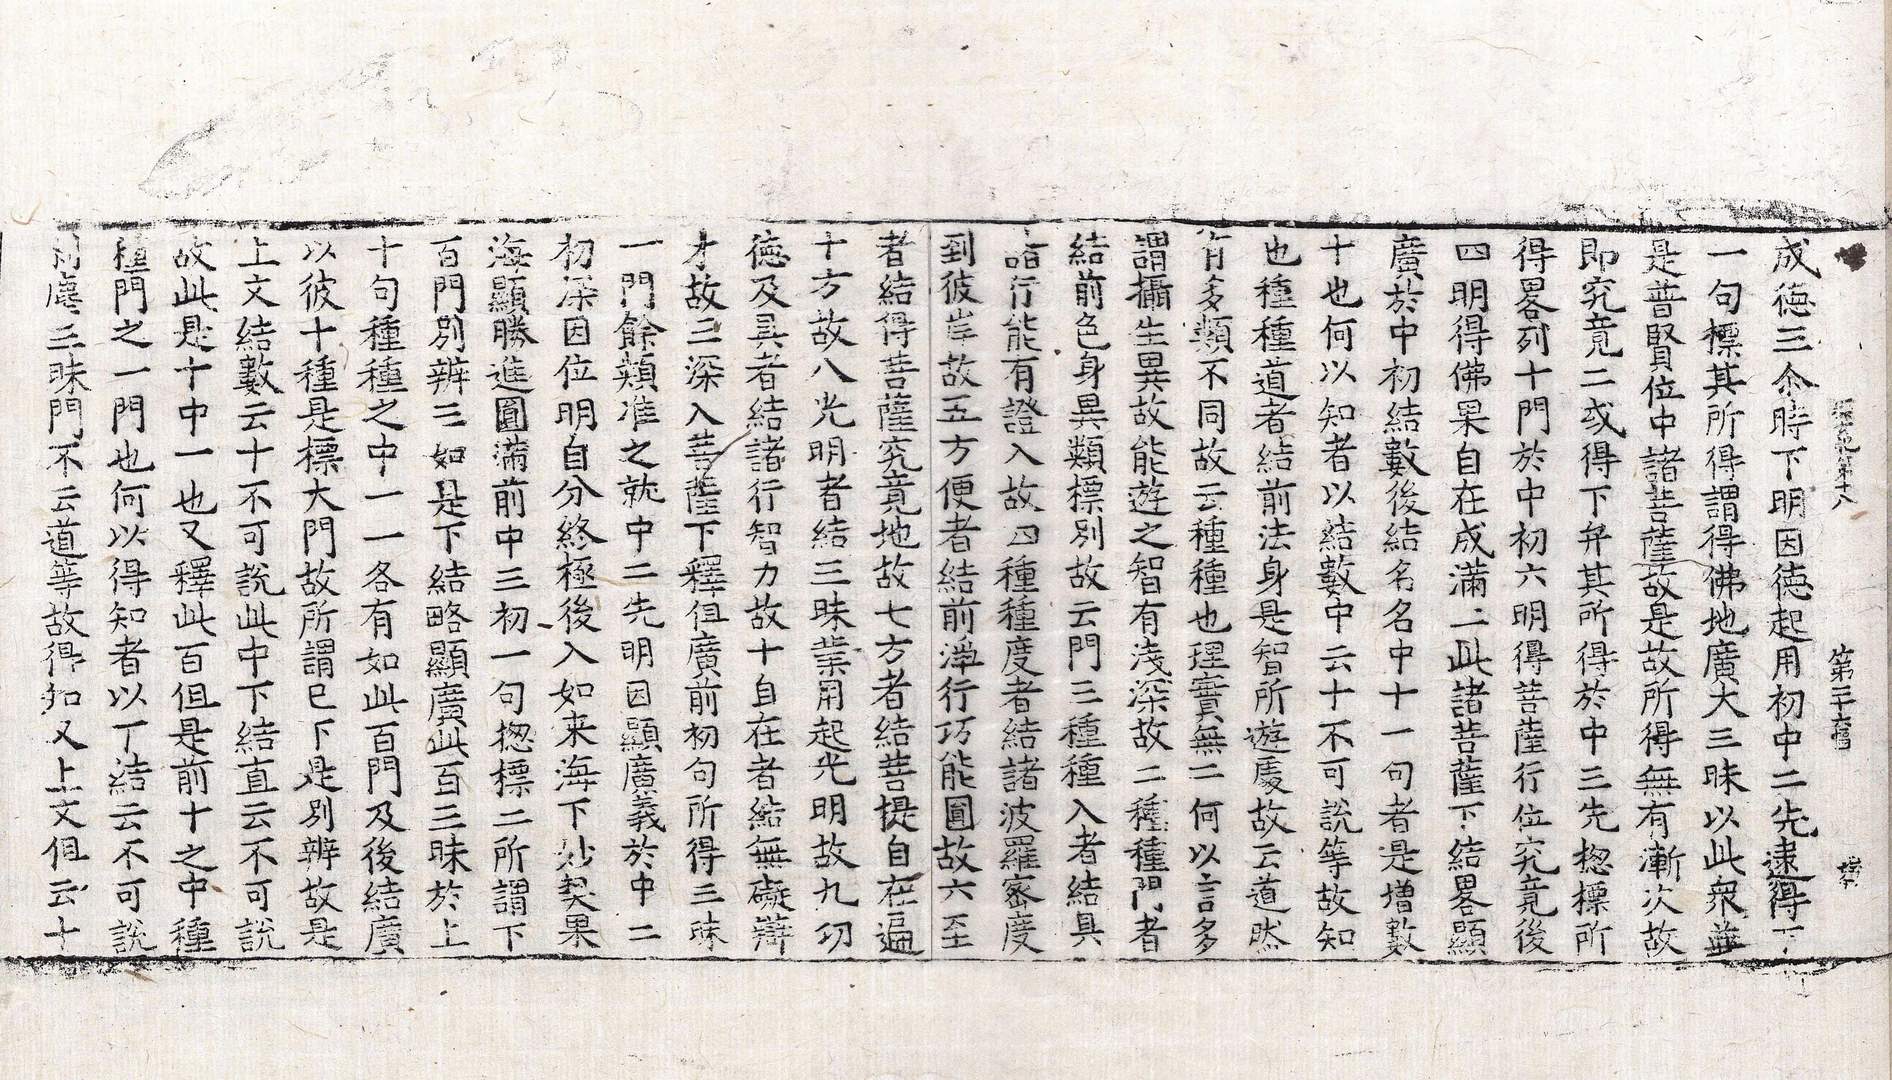 成徳三尒時下明因徳起用初中二先逮得下
一句標其所得謂得佛地廣大三昧以此衆並
是普賢位中諸菩薩故是故所得無有漸次故
即究竟二或得下弁其所得於中三先揔標所
得畧列十門於中初六明得菩薩行位究竟後
四明得佛果自在成滿二此諸菩薩下結畧顯
廣於中初結數後結名名中十一句者是増數
十也何以知者以結數中云十不可說等故知
也種種道者結前法身是智所遊處故云道然
有多類不同故云種種也理實無二何以言多
謂攝生異故能遊之智有淺深故二種種門者
結前色身異類標別故云門三種種入者結具
諸行能有證入故四種種度者結諸波羅宻度
到彼岸故五方便者結前淨行巧能圓故六至
者結得菩薩究竟地故七方者結菩提自在遍
十方故八光明者結三昧業用起光明故九功
徳及具者結諸行智力故十自在者結無礙辯
才故三深入菩薩下釋但廣前初句所得三昧
一門餘類准之就中二先明因顯廣義於中二
初深因位明自分終極後入如来海下妙契果
海顯勝進圓滿前中三初一句揔標二所謂下
百門別辨三如是下結略顯廣此百三昧於上
十句種種之中一一各有如此百門及後結廣
以彼十種是標大門故所謂已下是別辨故是
上文結數云十不可說此中下結直云不可說
故此是十中一也又釋此百但是前十之中種
種門之一門也何以得知者以下結云不可說
刹塵三昧門不云道等故得知又上文但云十